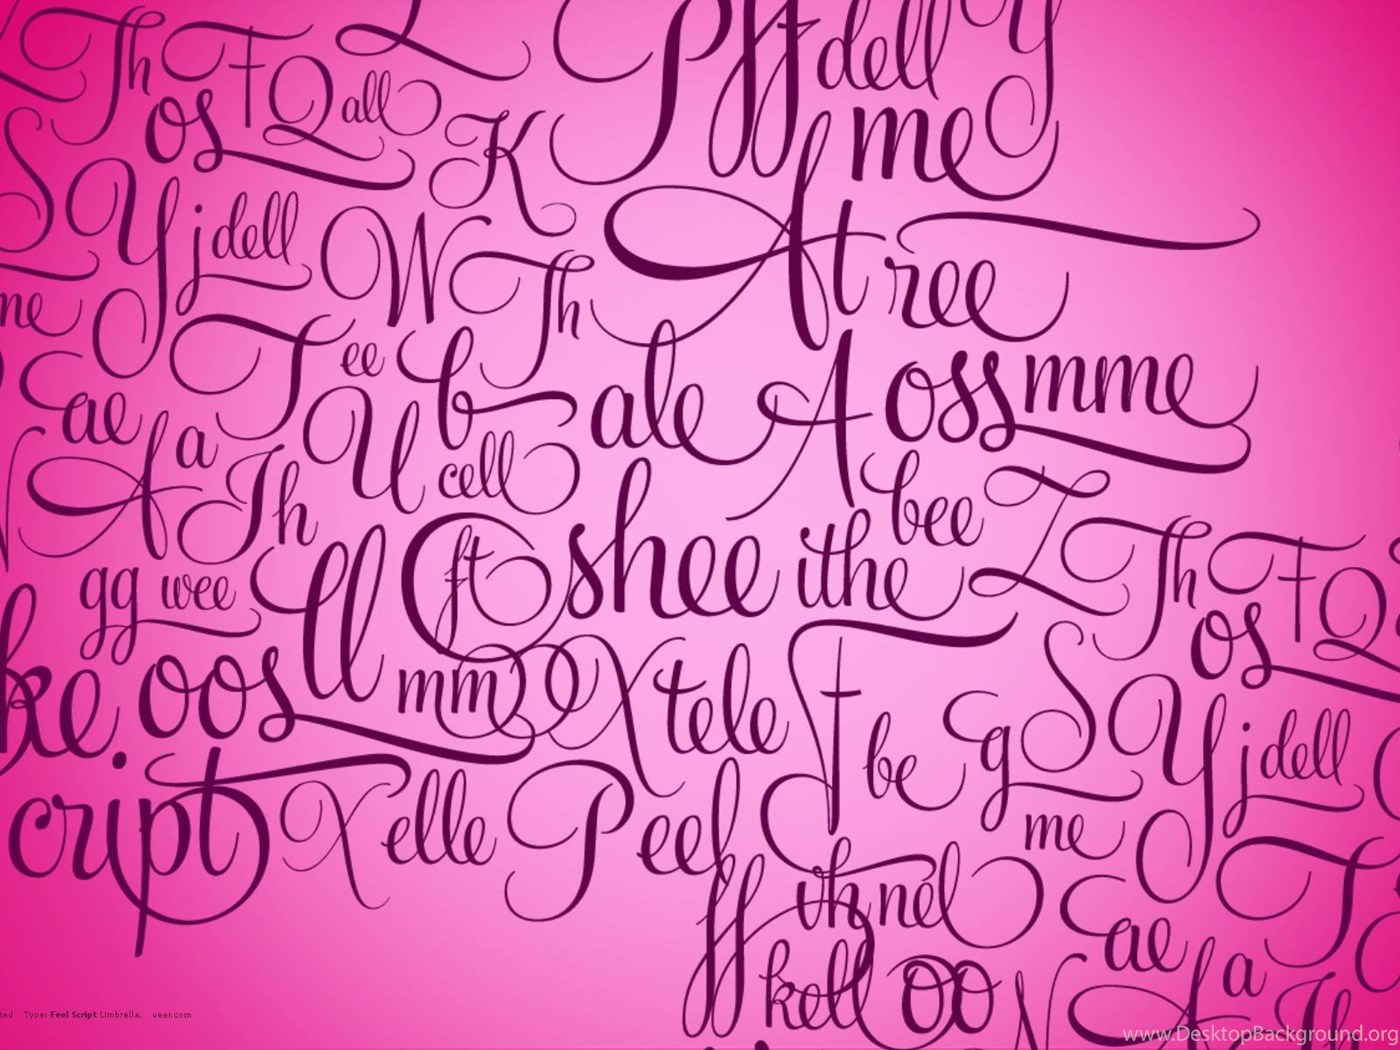 Th
F
Q
all
os
K
P
ff
dell
Y
me
S
Y
j
dell
W
Th
At
ree
me
T
ee
b
ale
A
oss
mme
ae
a
U
cell
A
Th
bee
Z
Th
F
Q
gg
wee
ll
ft
shee
ithe
os
ke.
oos
mm
X
tele
F
be
g
S
Y
j
dell
cript
X
elle
P
eef
me
T
ff
th
nel
ae
a
kell
oo
N
A
Th
ted Type: Feel Script Umbrella. veer.com
www.DesktopBackground.org